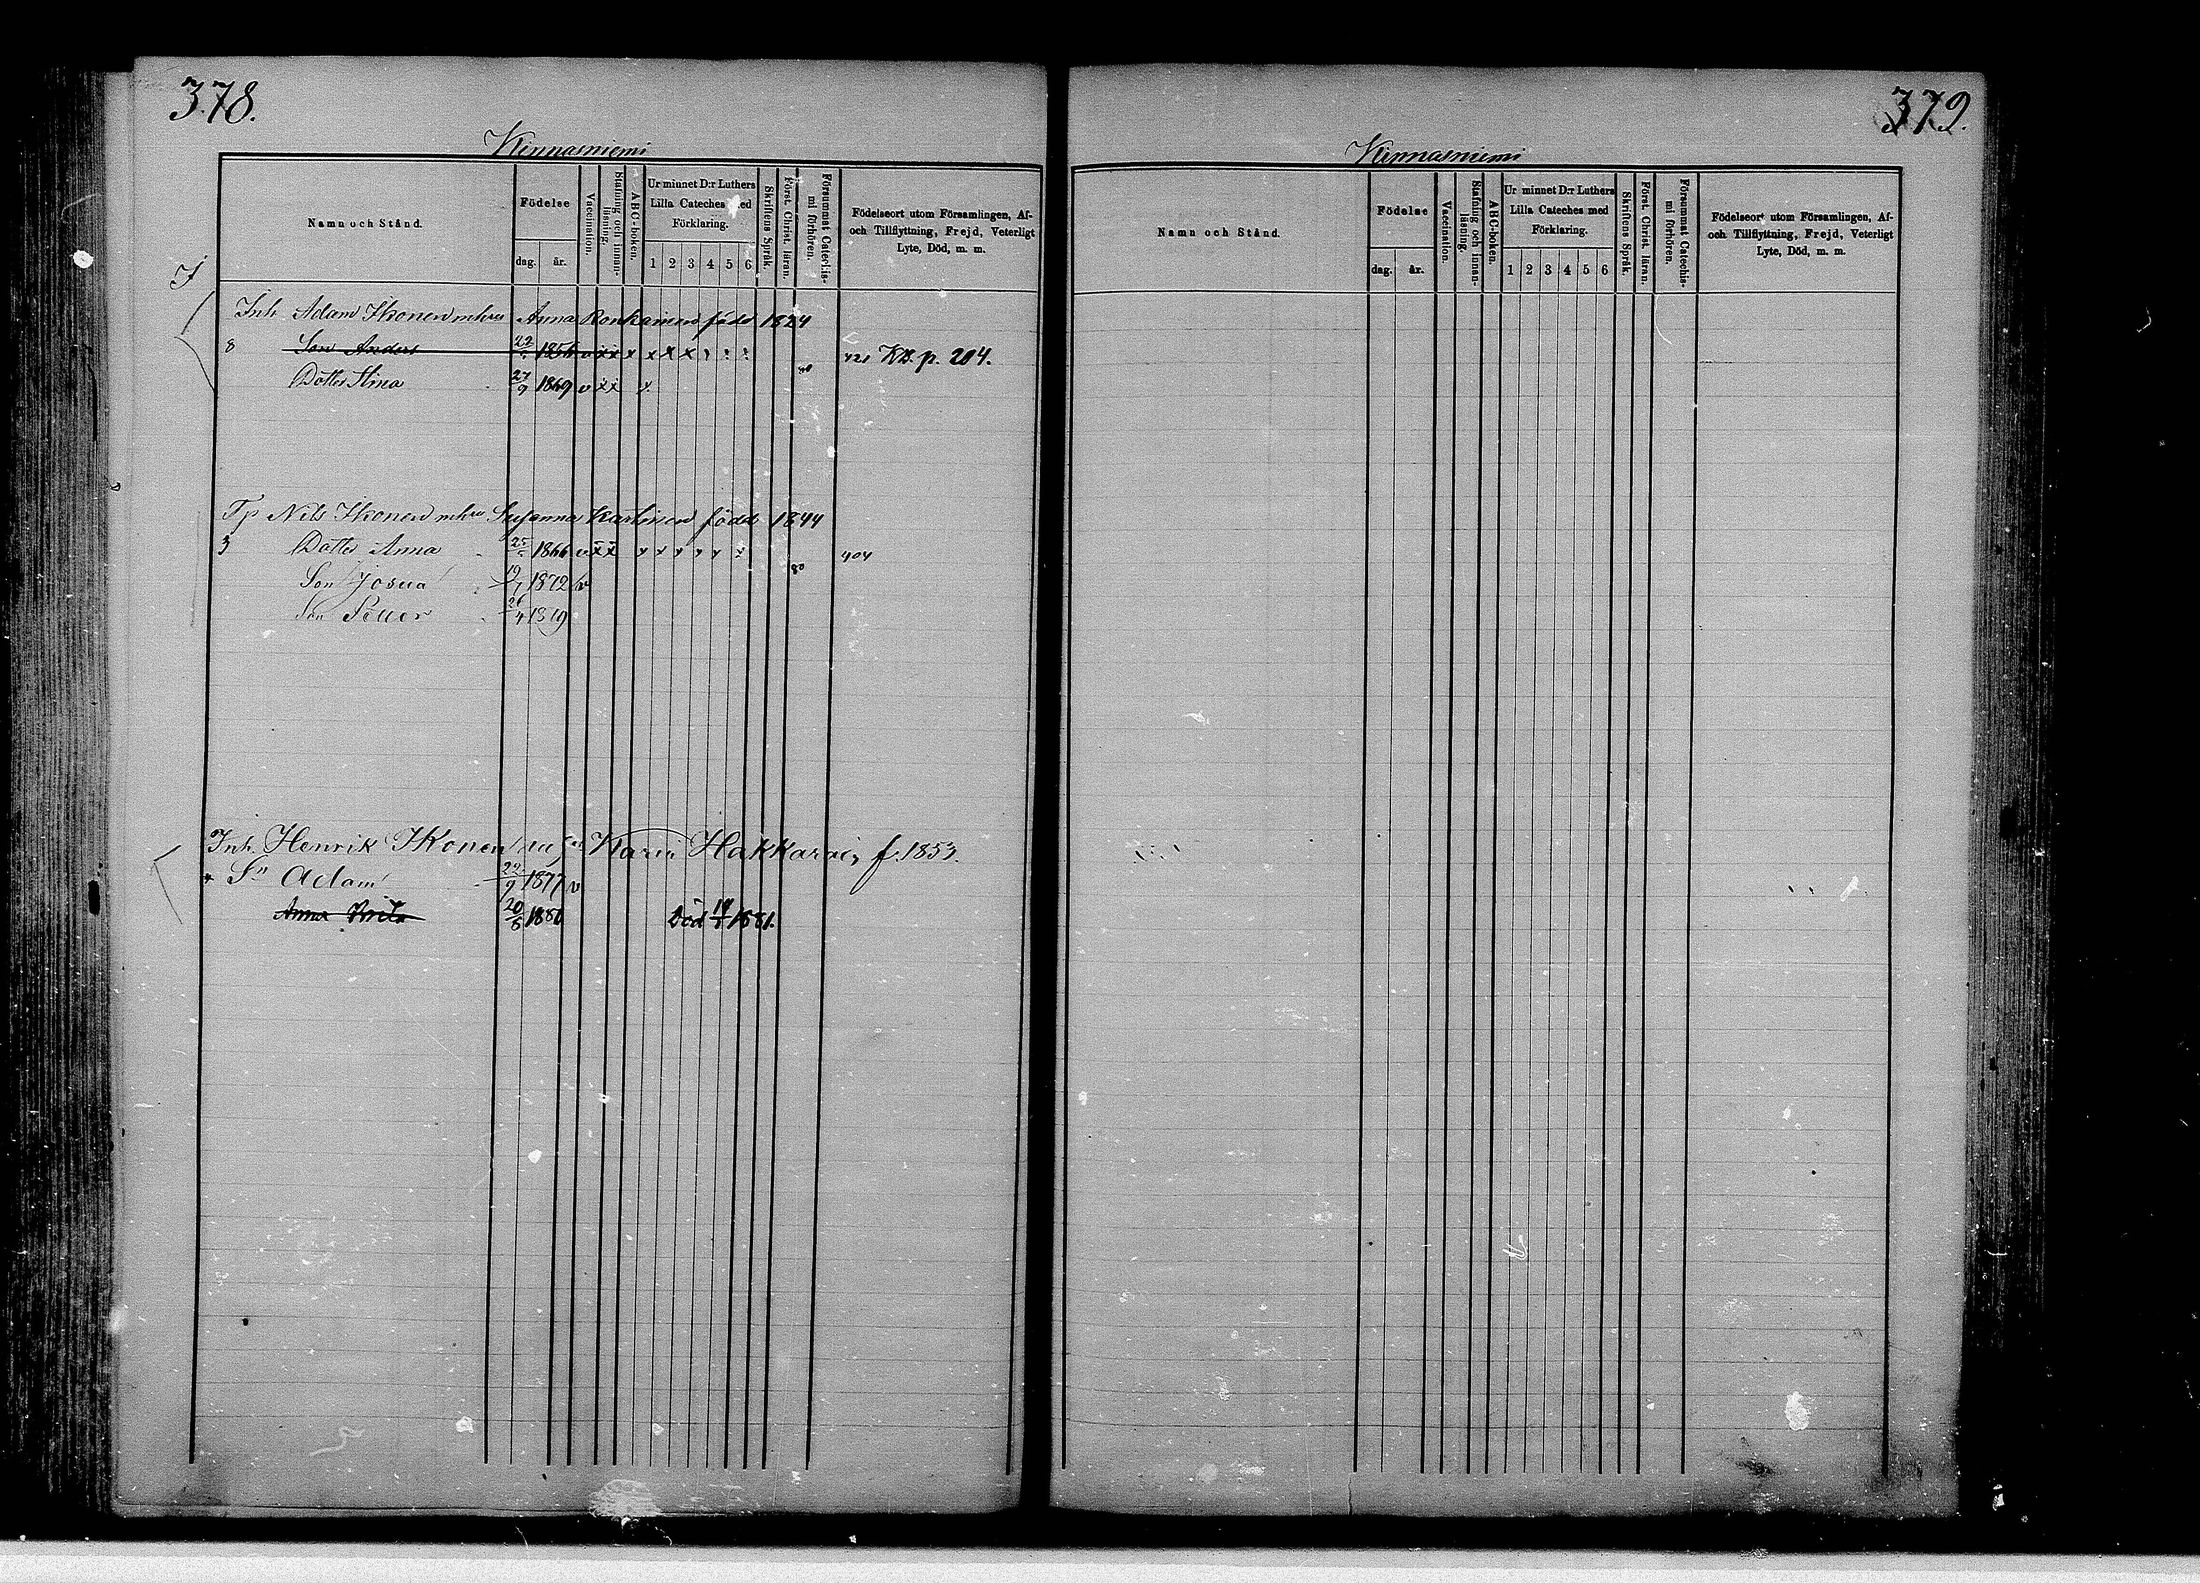 378.
Kinnasniemi
Namn och Stånd.
Födelse
dag. år.
Vaccination.
Stafning och innanläsning.
ABC-boken.
Ur minnet D:r Luthers Lilla Cateches med Förklaring.
1 2 3 4 5 6
Skriftens Språk.
Först. Christ. läran.
Försummat Catechismi förhören.
Födelseort utom Församlingen, Af- och Tillflyttning, Frejd, Veterligt Lyte, Död, m. m.
I
Inh. Adam Ikonen m hu Anna Ronkainen född 1824
8 Son Anders 1854 v x x x x x x 421 Kb. p. 204.
Dotter Stina 27/9 1869 v x x x 80
Tp Nils Ikonen m hu Susanna Karhinen född 1844
3 Dotter Anna 1866 v x x x x x x x x 80 404
Son Josua 1872 v
Son Petter 26/4 1869
Inh. Henrik Ikonen Karin Hakkarain f. 1853.
Sn Adam 22/9 1877 v
Anna Brita 20/8 1880 Död 1881.
379.
Kinnasniemi
Namn och Stånd.
Födelse
dag. år.
Vaccination.
Stafning och innanläsning.
ABC-boken.
Ur minnet D:r Luthers Lilla Cateches med Förklaring.
1 2 3 4 5 6
Skriftens Språk.
Först. Christ. läran.
Försummat Catechismi förhören.
Födelseort utom Församlingen, Af- och Tillflyttning, Frejd, Veterligt Lyte, Död, m. m.